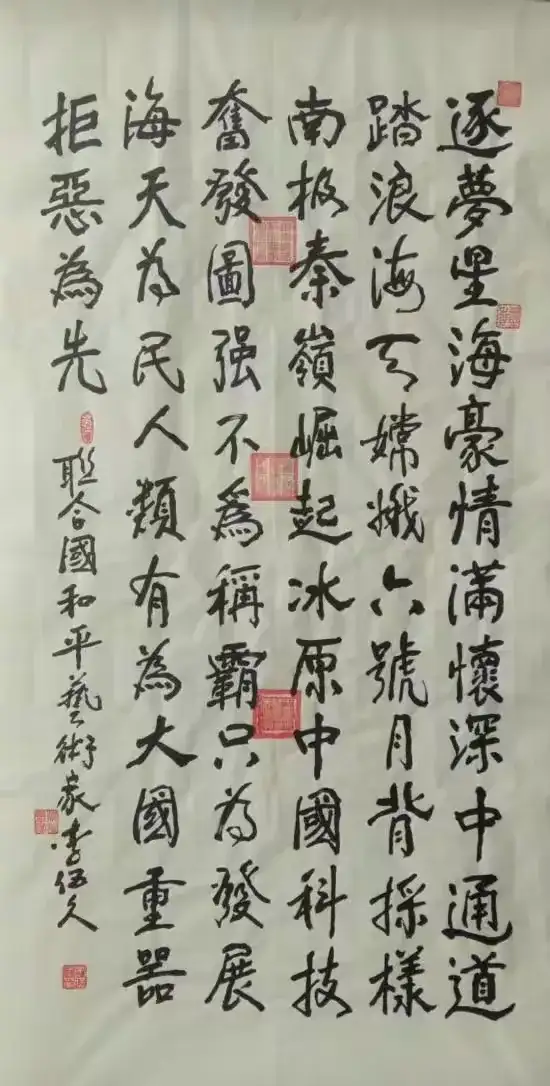 逐夢星海豪情滿懷深中通道
踏浪海天嫦娥六號月背採樣
南极秦嶺崛起冰原中國科技
奮發圖强不為稱霸只为發展
海天为民人類有為大國重器
拒惡為先
聯合國和平藝術家李伍久